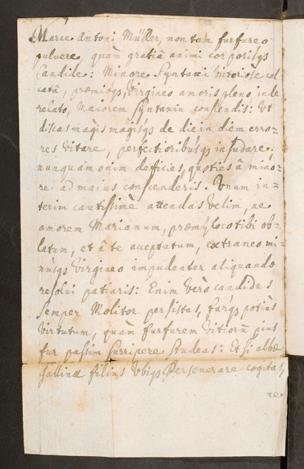 Marce Antoni Müller, non tam furfureo
pulvere, quàm gratiâ animi corporisq3
Candide: Minore Syntaxi victoriose cal
catâ, præmioq3, Virgineo amoris pleno inde
relato, Maiorem Syntaxin conscendis: Vt
discas magìs magisq3 de die in diem erro-
res vitare, perfectioribusq3 insudare.
nunquam enim deficias, quoties à mino-
re ad maius conscenderis. Vnum in-
terim cautissimè attendas velim, ne
amorem Marianum, præmij loco tibi ob-
latum, et à te acceptum, extraneo mi-
nusq3 Virgineo impudenter aliquando
resolvi patiaris: Enim vero candidus
semper Molitor persistas, farq3 potiùs
Virtutum, quàm furfurem Vitiorum pius
fur passim surripere studeas: Et si albæ
gallinæ filius vbiq3 perseverare cogitas,
ne